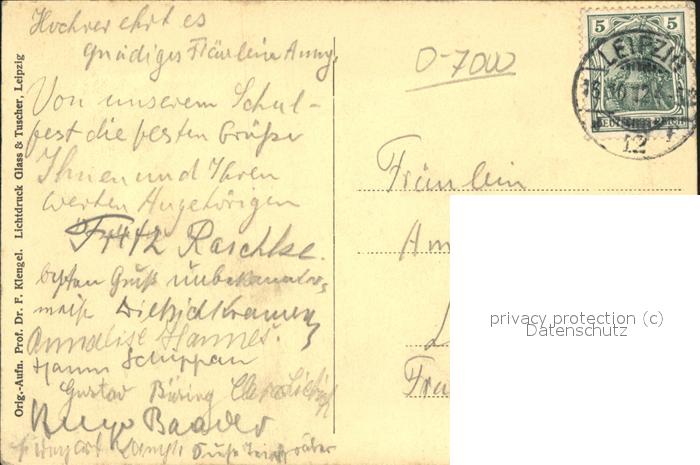 Hochverehrtes
gnädiges Fräulein Anny,
Von unserem Schul-
fest die besten Grüße
Ihnen und Ihren
werten Angehörigen
Fritz Raschke.
besten Gruß unbekannter-
weise
Annalise Hannes.
Hanns Schippan
Gustav Büring
Hugo Baader
Orig.-Aufn. Prof. Dr. F. Klengel. Lichtdruck Glass & Tuscher, Leipzig
O-7000
5 5
LEIPZIG
12
DEUTSCHES REICH
Fräulein
Am
L
Fra
privacy protection (c)
Datenschutz